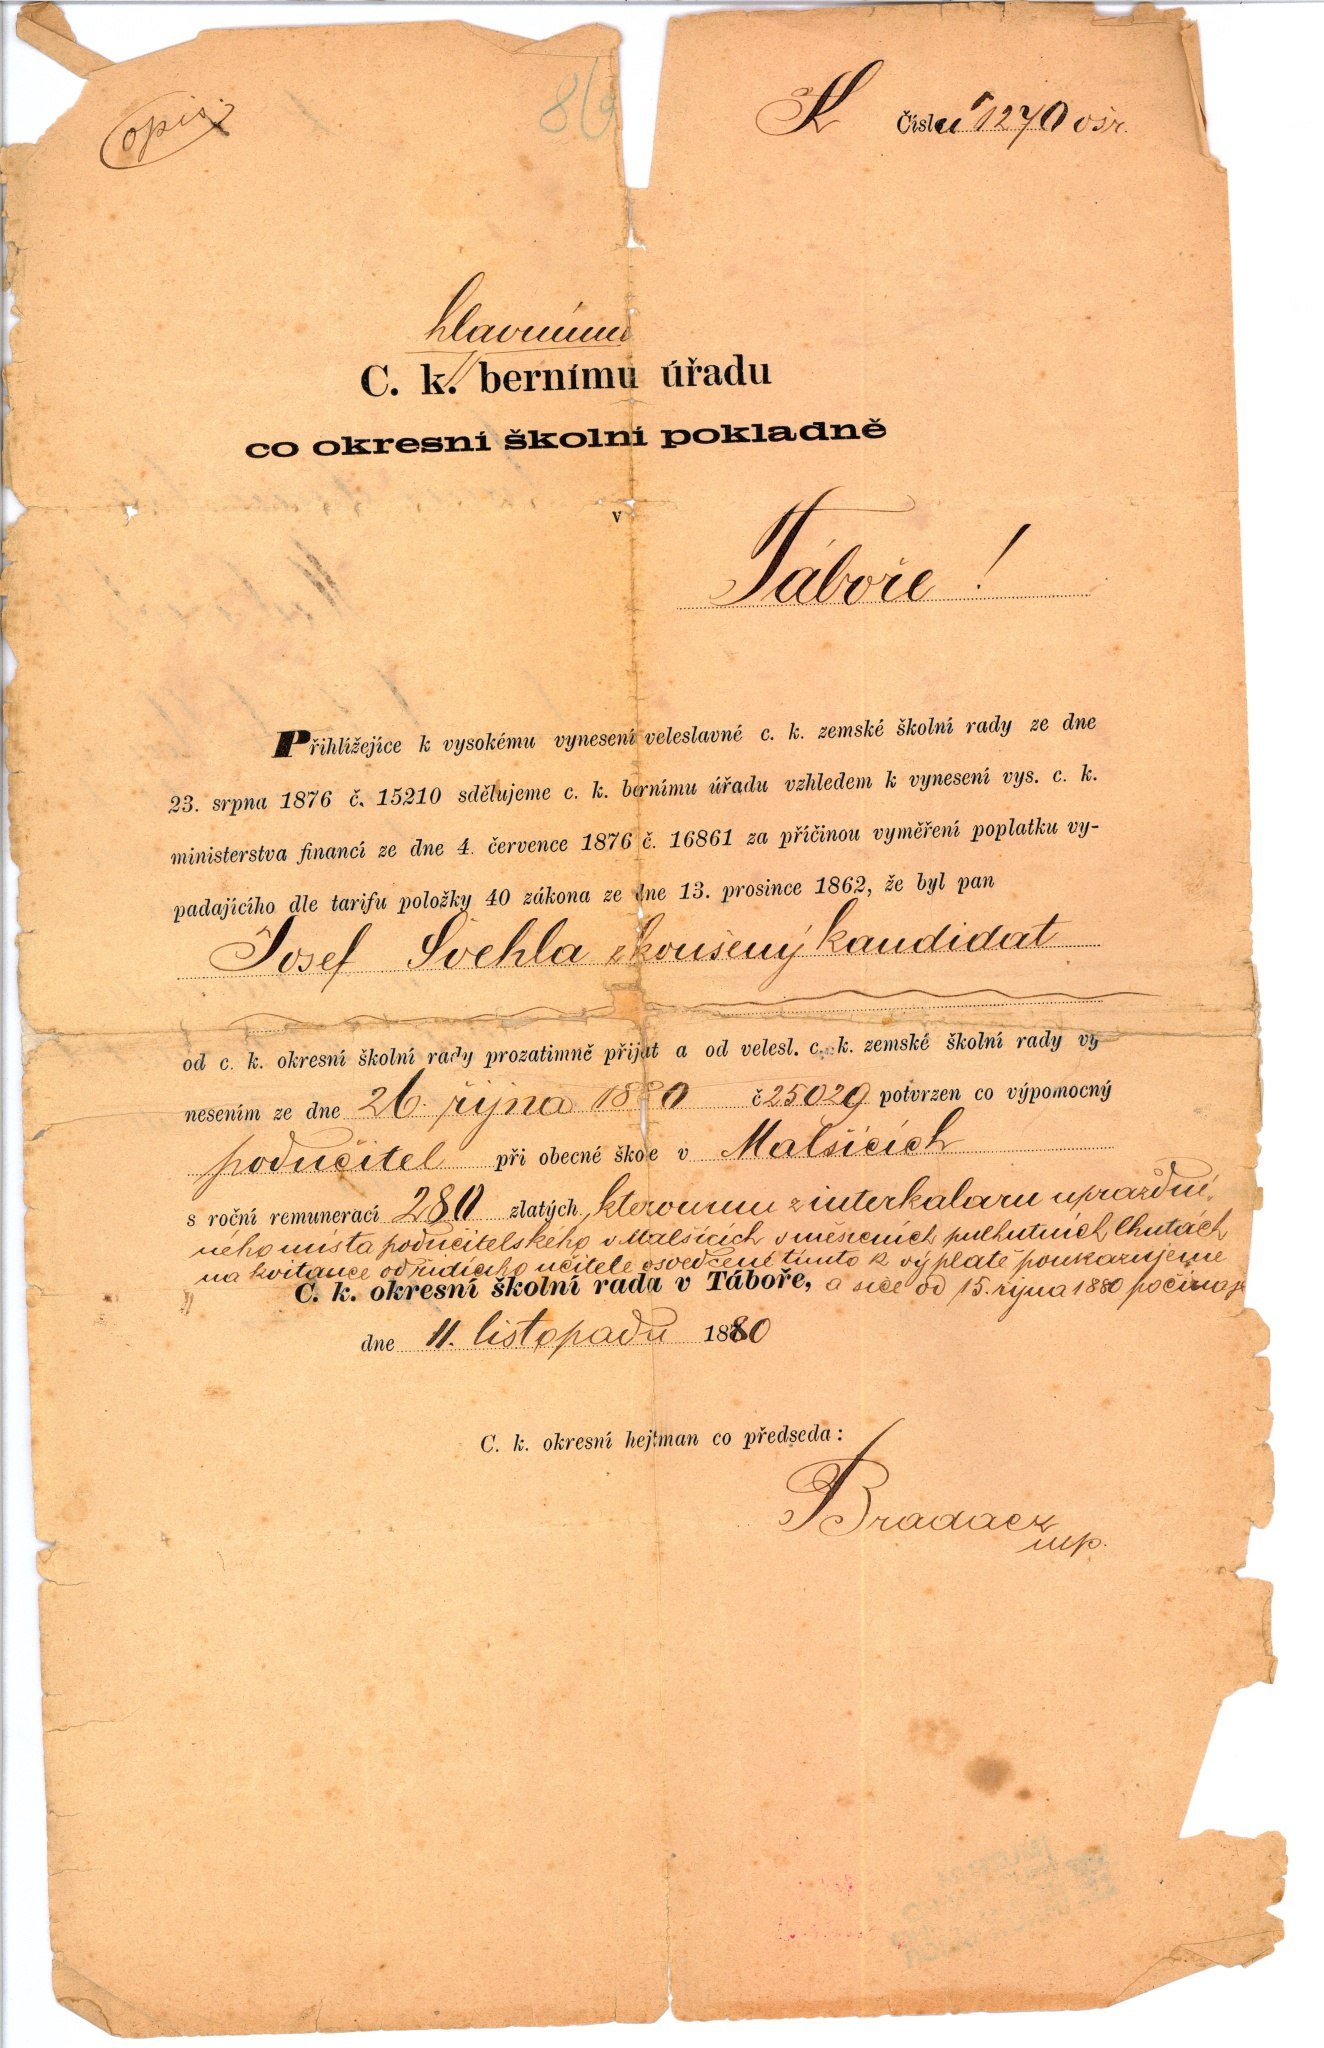 opis
86
K Číslo 1270 ośr.
hlavnímu
C. k. bernímu úřadu
co okresní školní pokladně
v
Táboře !
Přihlížejíce k vysokému vynesení veleslavné c. k. zemské školní rady ze dne
23. srpna 1876 č. 15210 sdělujeme c. k. bernímu úřadu vzhledem k vynesení vys. c. k.
ministerstva financí ze dne 4. července 1876 č. 16861 za příčinou vyměření poplatku vy-
padajícího dle tarifu položky 40 zákona ze dne 13. prosince 1862, že byl pan
Josef Švehla zkoušený kandidat
od c. k. okresní školní rady prozatimně přijat a od velesl. c. k. zemské školní rady vy
nesením ze dne 26. října 1880 č 25029 potvrzen co výpomocný
podučitel při obecné škole v Malšicích
s roční remunerací 280 zlatých, kterounu z interkalaru uprazdně-
ného místa podučitelského v Malšicích v měsíčních pulhutních lhutách
na kvitance od řídícího učitele osvědčené tímto k výplatě poukazujeme
C. k. okresní školní rada v Táboře, a sice od 15. října 1880 počínaje
dne 11. listopadu 1880
C. k. okresní hejtman co předseda:
Bradacz
mp.